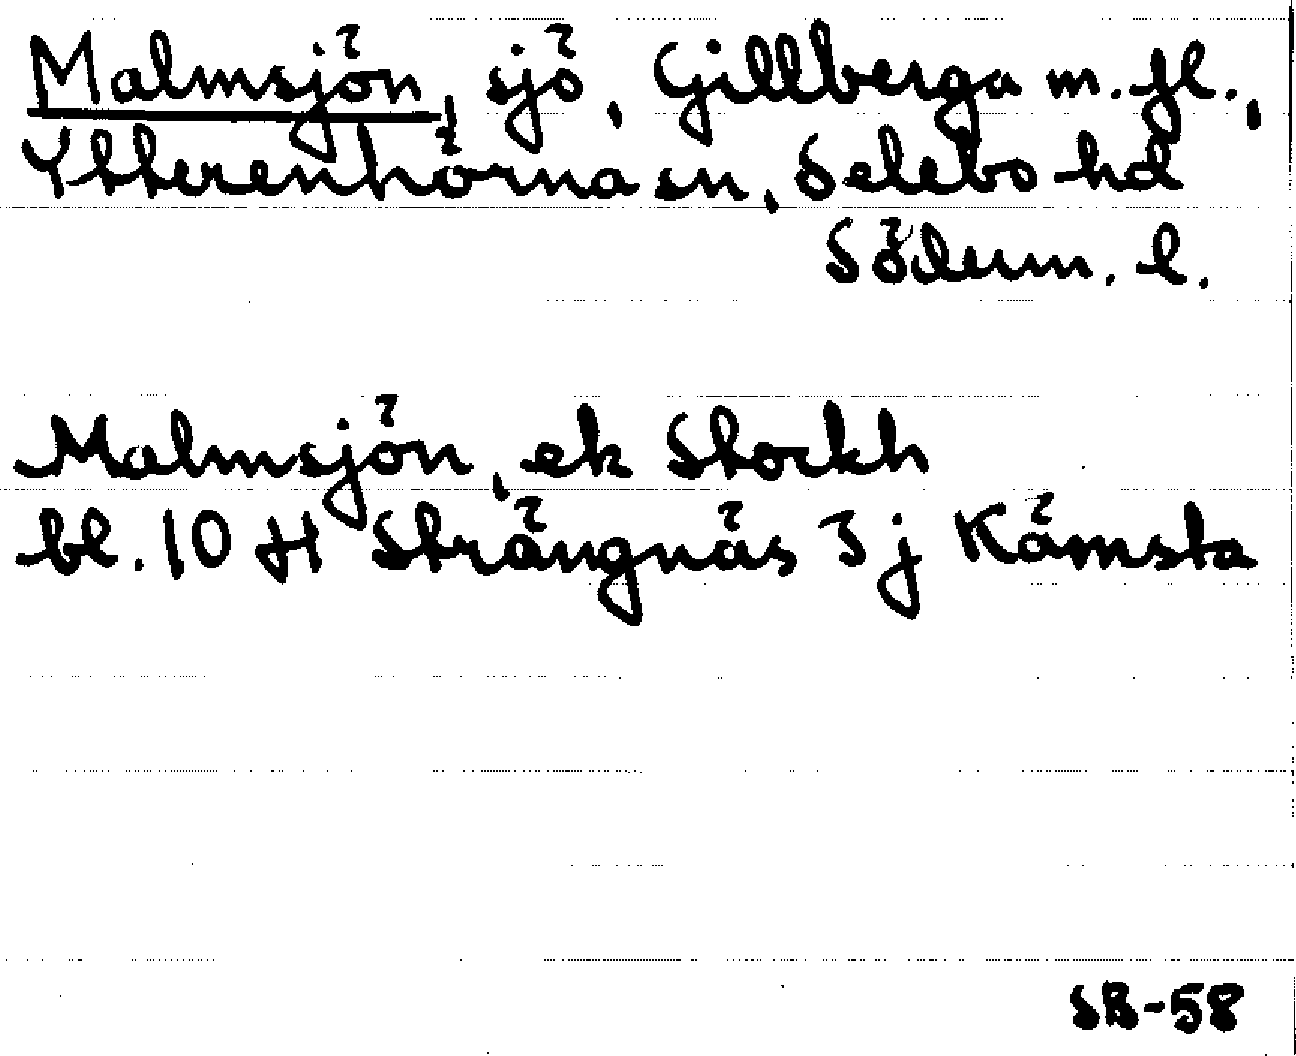 Malmsjön, sjö, Gillberga m.fl.,
Ytterenhörna sn, Selebo hd
Söderm. l.
Malmsjön, ek Stockh
bl. 10 H Strängnäs 3 j Kämsta
SB-58